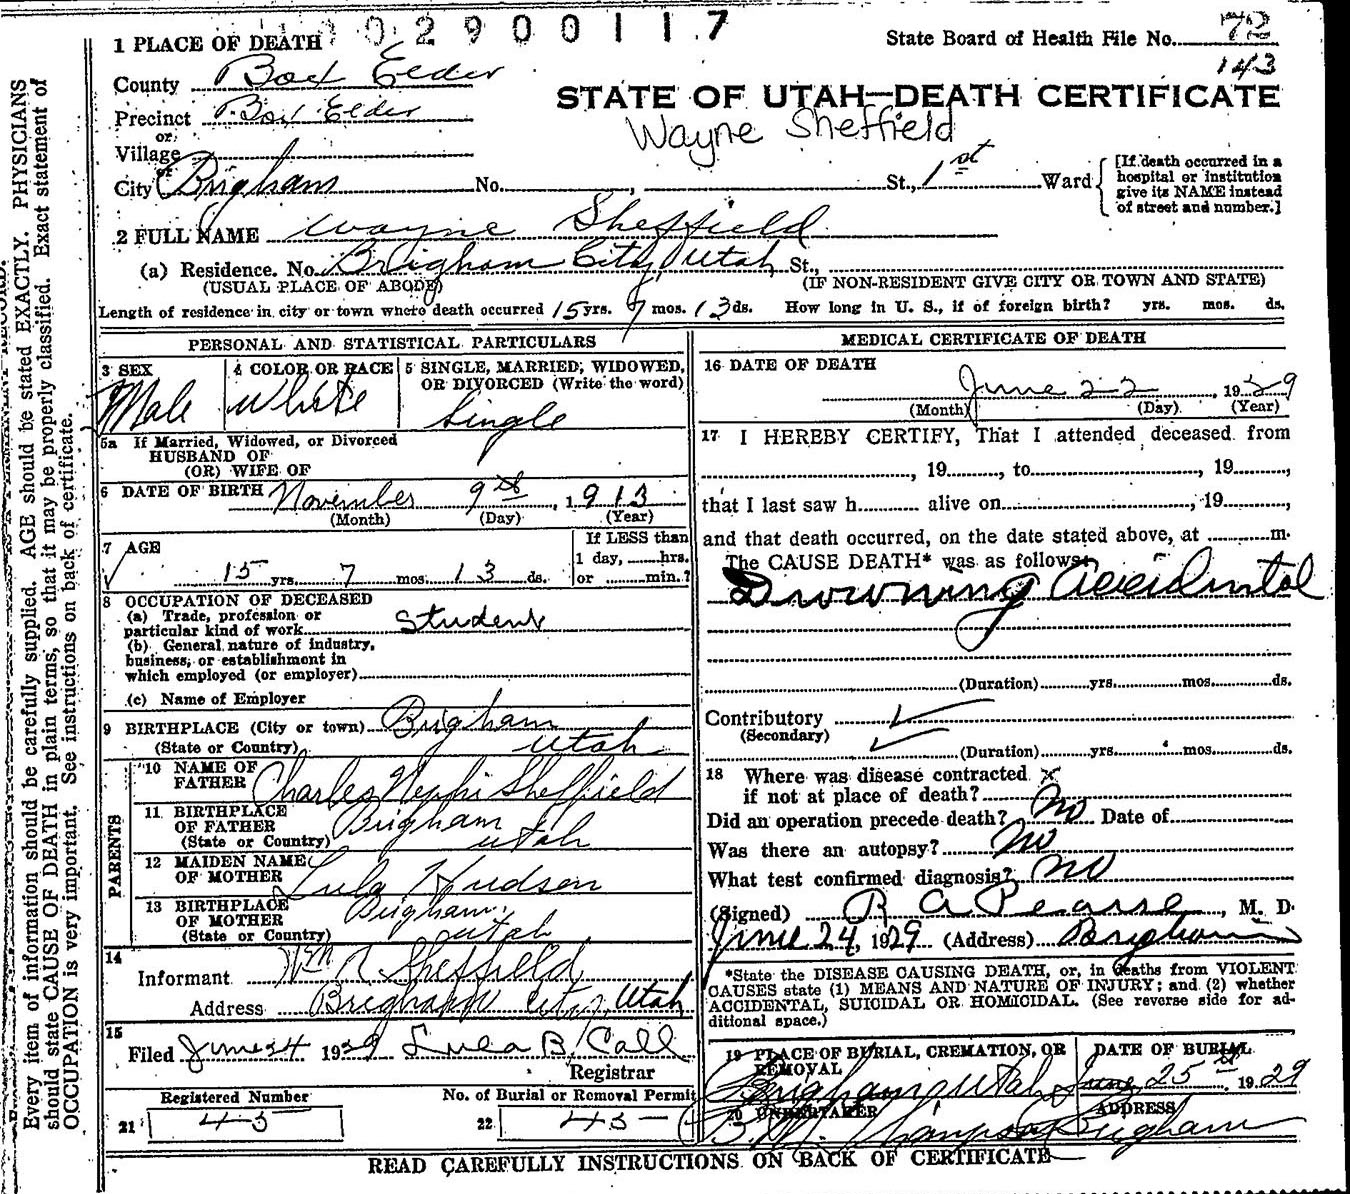 0 0 2 9 0 0 1 1 7
State Board of Health File No. 72
143
1 PLACE OF DEATH
County Box Elder
Precinct Box Elder
or
Village
or
City Brigham No. , St., 1st Ward
[If death occurred in a hospital or institution give its NAME instead of street and number.]
STATE OF UTAH—DEATH CERTIFICATE
Wayne Sheffield
2 FULL NAME Wayne Sheffield
(a) Residence. No. Brigham City, Utah St.,
(USUAL PLACE OF ABODE) (IF NON-RESIDENT GIVE CITY OR TOWN AND STATE)
Length of residence in city or town where death occurred 15 yrs. 7 mos. 13 ds. How long in U. S., if of foreign birth? yrs. mos. ds.
PERSONAL AND STATISTICAL PARTICULARS
3 SEX Male
4 COLOR OR RACE White
5 SINGLE, MARRIED, WIDOWED, OR DIVORCED (Write the word) Single
5a If Married, Widowed, or Divorced
HUSBAND OF
(OR) WIFE OF
6 DATE OF BIRTH November 9th, 1913
(Month) (Day) (Year)
7 AGE
15 yrs. 7 mos. 13 ds.
If LESS than
1 day, hrs.
or min.?
8 OCCUPATION OF DECEASED
(a) Trade, profession or
particular kind of work Student
(b) General nature of industry,
business, or establishment in
which employed (or employer)
(c) Name of Employer
9 BIRTHPLACE (City or town) Brigham
(State or Country) Utah
PARENTS
10 NAME OF FATHER Charles Nephi Sheffield
11 BIRTHPLACE OF FATHER Brigham
(State or Country) Utah
12 MAIDEN NAME OF MOTHER Lula Hudson
13 BIRTHPLACE OF MOTHER Brigham,
(State or Country) Utah
14
Informant Wm N Sheffield
Address Brigham City, Utah
15
Filed June 24 1929 Lula B. Call
Registrar
Registered Number
21 45
No. of Burial or Removal Permit
22 45
MEDICAL CERTIFICATE OF DEATH
16 DATE OF DEATH
June 22, 1929
(Month) (Day) (Year)
17 I HEREBY CERTIFY, That I attended deceased from
, 19 , to , 19 ,
that I last saw h alive on , 19 ,
and that death occurred, on the date stated above, at m.
The CAUSE DEATH* was as follows:
Drowning Accidental
(Duration) yrs. mos. ds.
Contributory
(Secondary)
(Duration) yrs. mos. ds.
18 Where was disease contracted
if not at place of death? x
Did an operation precede death? no Date of
Was there an autopsy? no
What test confirmed diagnosis? no
(Signed) R A Pearse, M. D.
June 24, 1929 (Address) Brigham
*State the DISEASE CAUSING DEATH, or, in deaths from VIOLENT
CAUSES state (1) MEANS AND NATURE OF INJURY; and (2) whether
ACCIDENTAL, SUICIDAL OR HOMICIDAL. (See reverse side for ad-
ditional space.)
19 PLACE OF BURIAL, CREMATION, OR REMOVAL
Brigham, Utah
DATE OF BURIAL
June 25th, 1929
20 UNDERTAKER
B. M. Thompson
ADDRESS
Brigham
READ CAREFULLY INSTRUCTIONS ON BACK OF CERTIFICATE
Every item of information should be carefully supplied. AGE should be stated EXACTLY. PHYSICIANS
should state CAUSE OF DEATH in plain terms, so that it may be properly classified. Exact statement of
OCCUPATION is very important. See instructions on back of certificate.